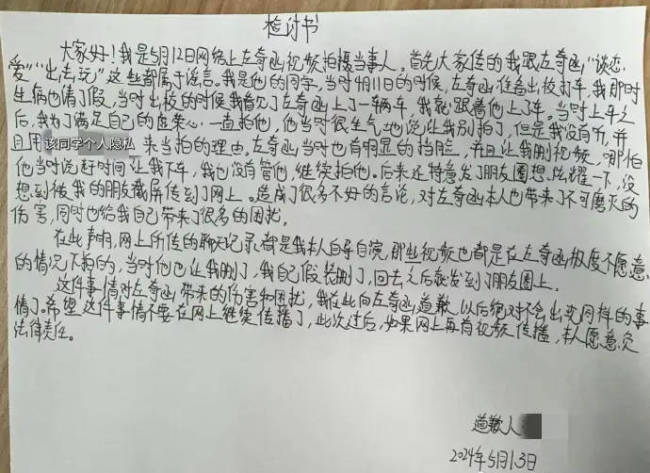 检讨书
大家好！我是5月12日网络上左奇函视频拍摄当事人。首先大家传的我跟左奇函“谈恋
爱”“出去玩”这些都属于谣言。我是他的同学，当时4月11日的时候，左奇函住着出校打车，我那时
生病也请了假，当时出校的时候我看见了左奇函上了一辆车，我就跟着他上了车。当时上车之
后，我为了满足自己的虚荣心一直拍他，他当时很生气地说让我别拍了，但是我没有听，并
且用 该同学个人隐私 来当拍的理由。左奇函当时也有明显的挡脸，并且让我删视频，哪怕
他当时说赶时间让我下车，我也没有管他，继续拍他。后来还特意发了朋友圈想炫耀一下，没
想到被我的朋友截屏传到了网上。造成了很多不好的言论，对左奇函本人也带来了不可磨灭的
伤害，同时也给我自己带来了很多的困扰。
在此声明，网上所传的聊天记录都是我本人自导自演，那些视频也都是在左奇函极度不愿意
的情况下拍的，当时他也让我删了，我自己假装删了，回去之后就发到了朋友圈上。
这件事情对左奇函带来的伤害和困扰，我在此向左奇函道歉。以后绝对不会出现同样的事
情了。希望这件事情不要在网上继续传播了，此次过后，如果网上再有视频传播，本人愿意负
法律责任。
道歉人
2024年5月13日